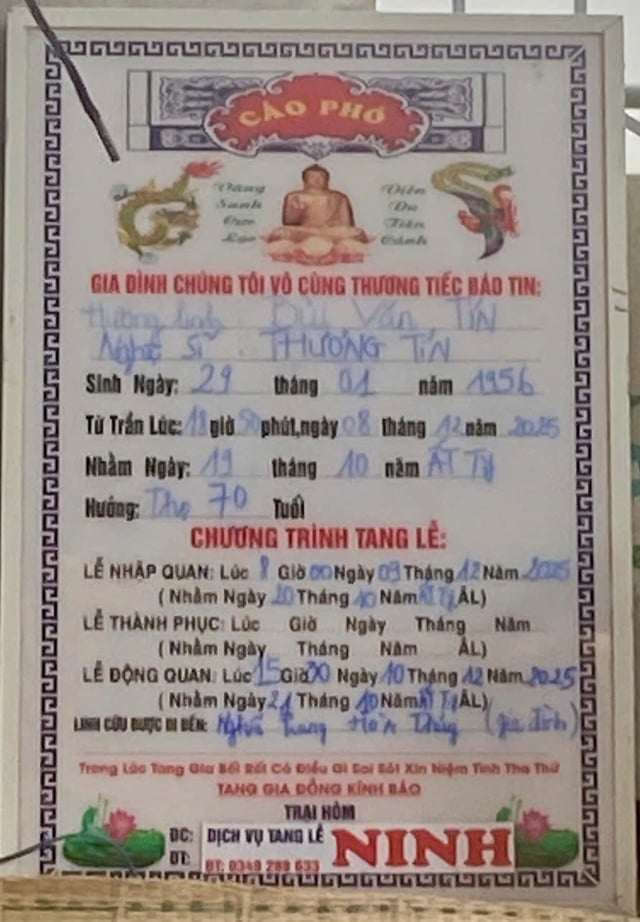 CÁO PHÓ
Vãng Sanh Cực Lạc
Viên Du Tiên Cảnh
GIA ĐÌNH CHÚNG TÔI VÔ CÙNG THƯƠNG TIẾC BÁO TIN:
Hương linh BÙI VĂN TÍN
Nghệ Sĩ . THƯƠNG TÍN
Sinh Ngày: 29 tháng 01 năm 1956
Từ Trần Lúc: 18 giờ 50 phút, ngày 08 tháng 12 năm 2025
Nhằm Ngày: 19 tháng 10 năm ẤT TỴ
Hưởng: Thọ 70 Tuổi
CHƯƠNG TRÌNH TANG LỄ:
LỄ NHẬP QUAN: Lúc 8 Giờ 00 Ngày 09 Tháng 12 Năm 2025
( Nhằm Ngày 20 Tháng 10 Năm ẤT TỴ ÂL)
LỄ THÀNH PHỤC: Lúc Giờ Ngày Tháng Năm
(Nhằm Ngày Tháng Năm ÂL)
LỄ ĐỘNG QUAN: Lúc 15 Giờ 00 Ngày 10 Tháng 12 Năm 2025
( Nhằm Ngày 21 Tháng 10 Năm ẤT TỴ ÂL)
LINH CỮU ĐƯỢC DI ĐẾN: Nghĩa Trang (gia đình)
Trong Lúc Tang Gia Bối Rối Có Điều Gì Sai Sót Xin Niệm Tình Tha Thứ
TANG GIA ĐỒNG KÍNH BÁO
TRẠI HÒM
ĐC: DỊCH VỤ TANG LỄ NINH
ĐT: ĐT: 0349 280 633